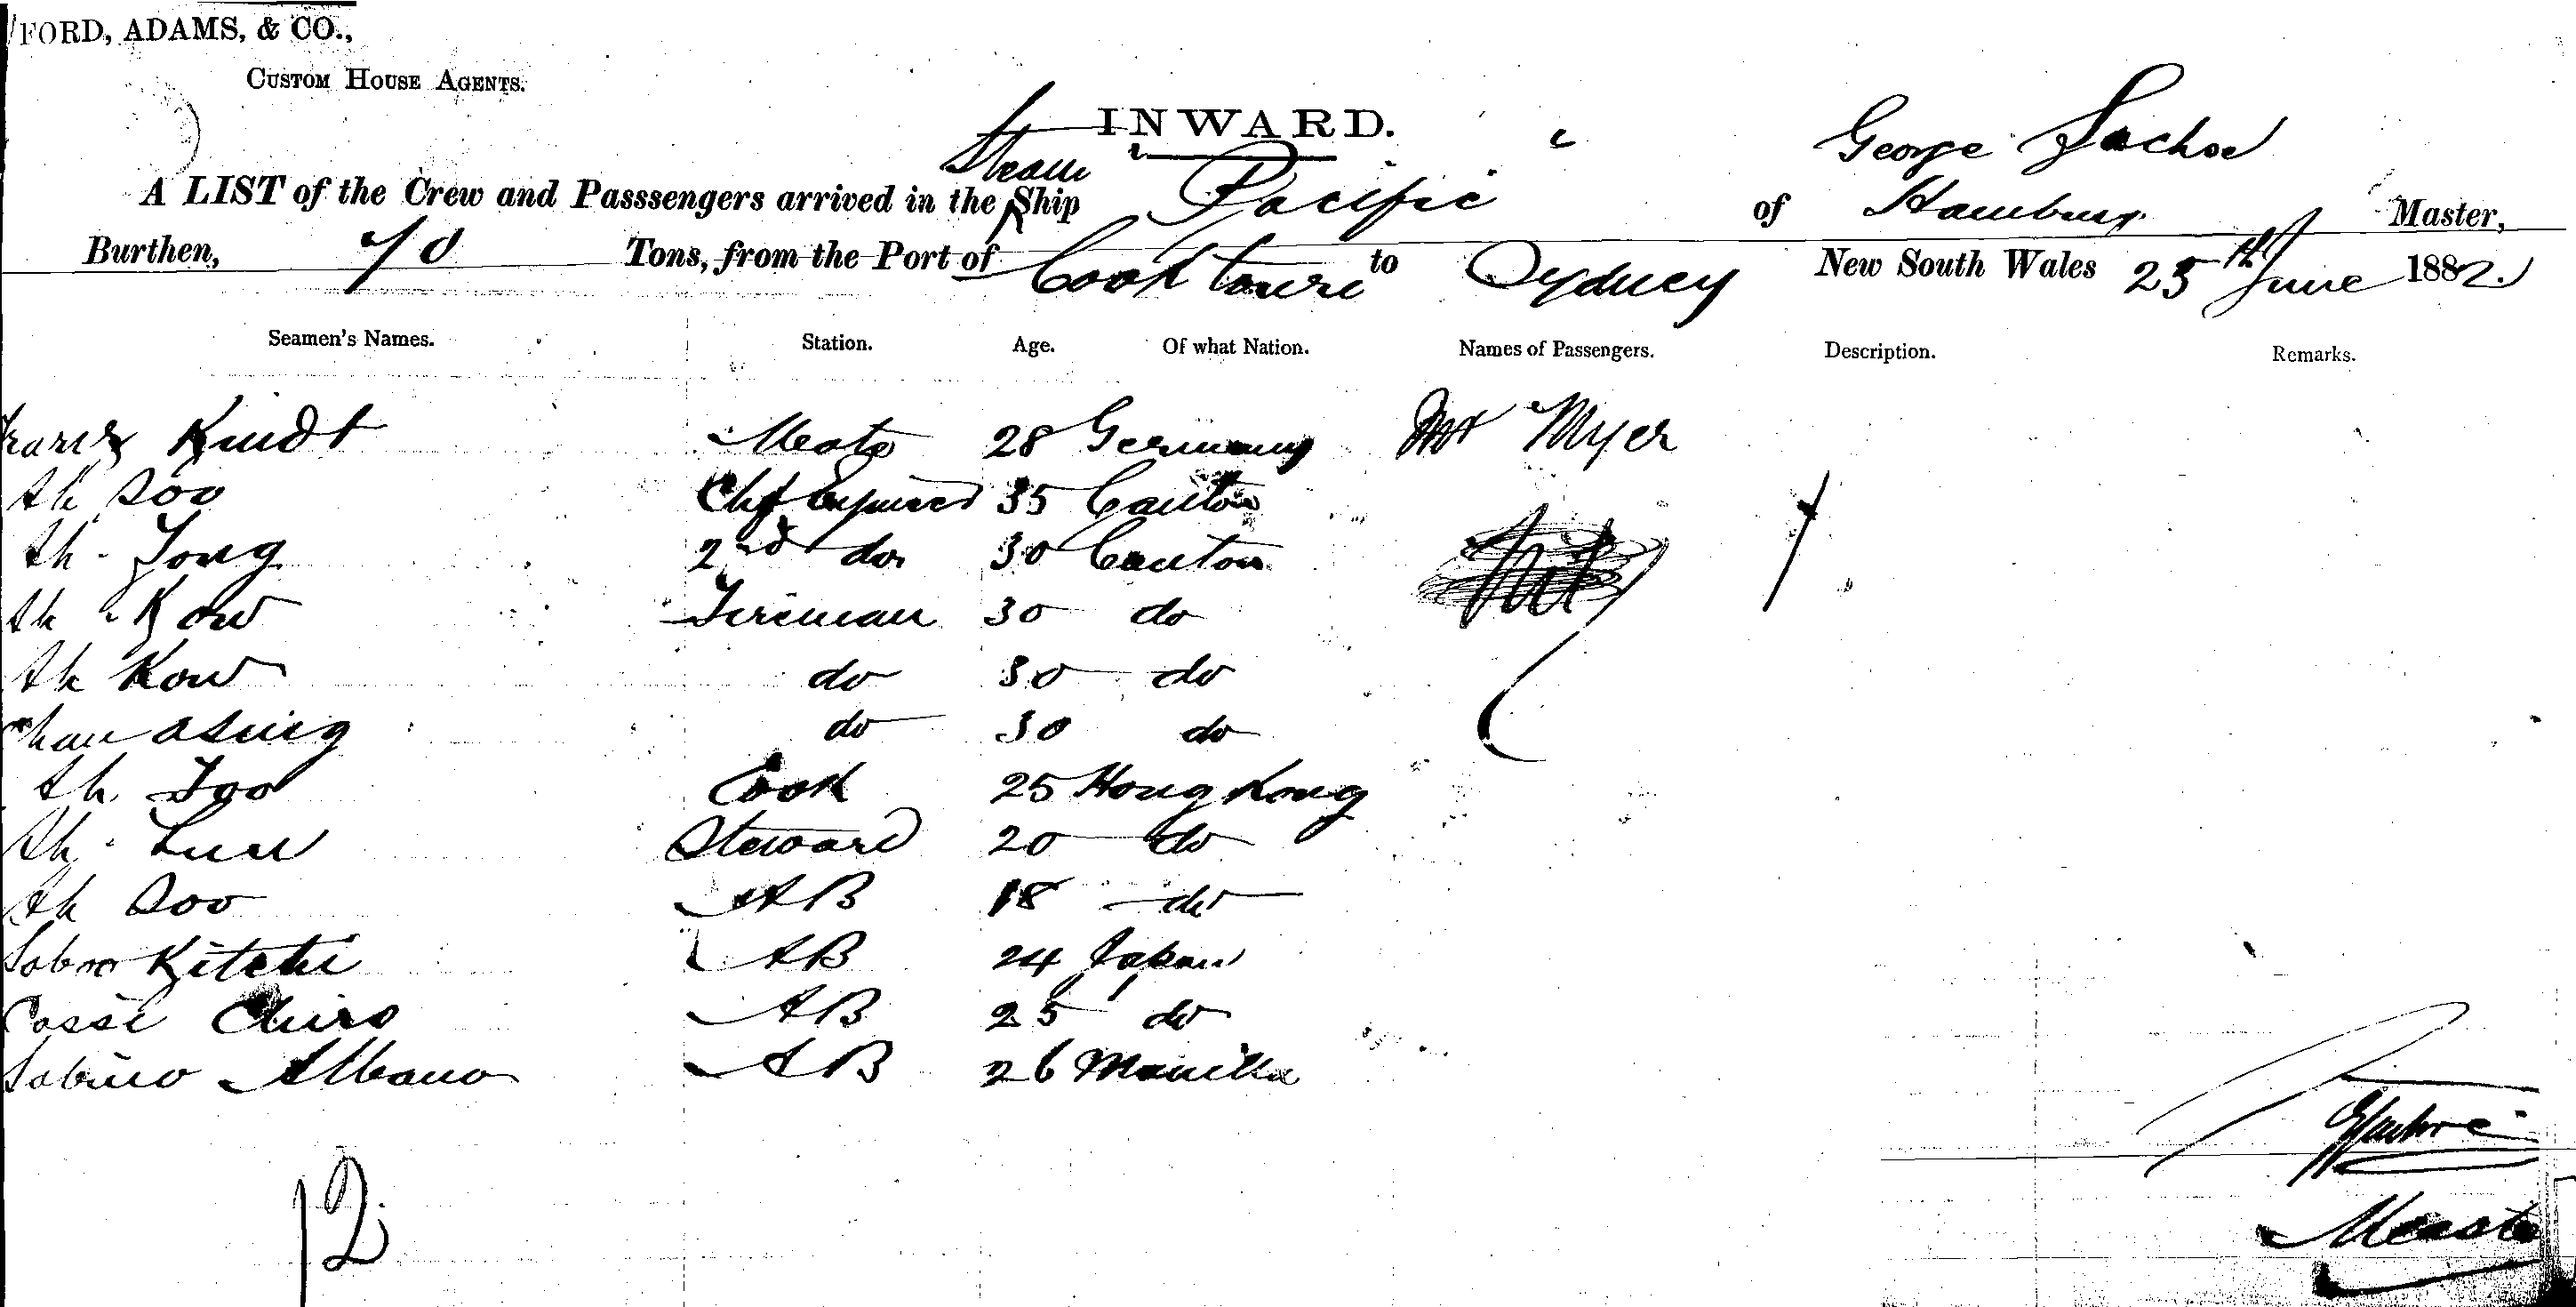 FORD, ADAMS, & CO.,
CUSTOM HOUSE AGENTS.
INWARD.
George Sachse
A LIST of the Crew and Passsengers arrived in the Steam Ship Pacific of Hamburg Master,
Burthen, 70 Tons, from the Port of Cooktown to Sydney New South Wales 25th June 1882.
Seamen's Names. Station. Age. Of what Nation. Names of Passengers. Description. Remarks.
Franz Kindt Mate 28 Germany Mr Myer
Ah Soo Chf Engineer 35 Canton
Ah Tong 2nd do 30 Canton
Ah Kow Fireman 30 do
Ah Kow do 30 do
Chan Asing do 30 do
Ah Foo Cook 25 Hong Kong
Ah Lum Steward 20 do
Ah Soo AB 18 do
Kitchi AB 24 Japan
Chiro AB 25 do
Sabino Albano AB 26 Manilla
12
Master